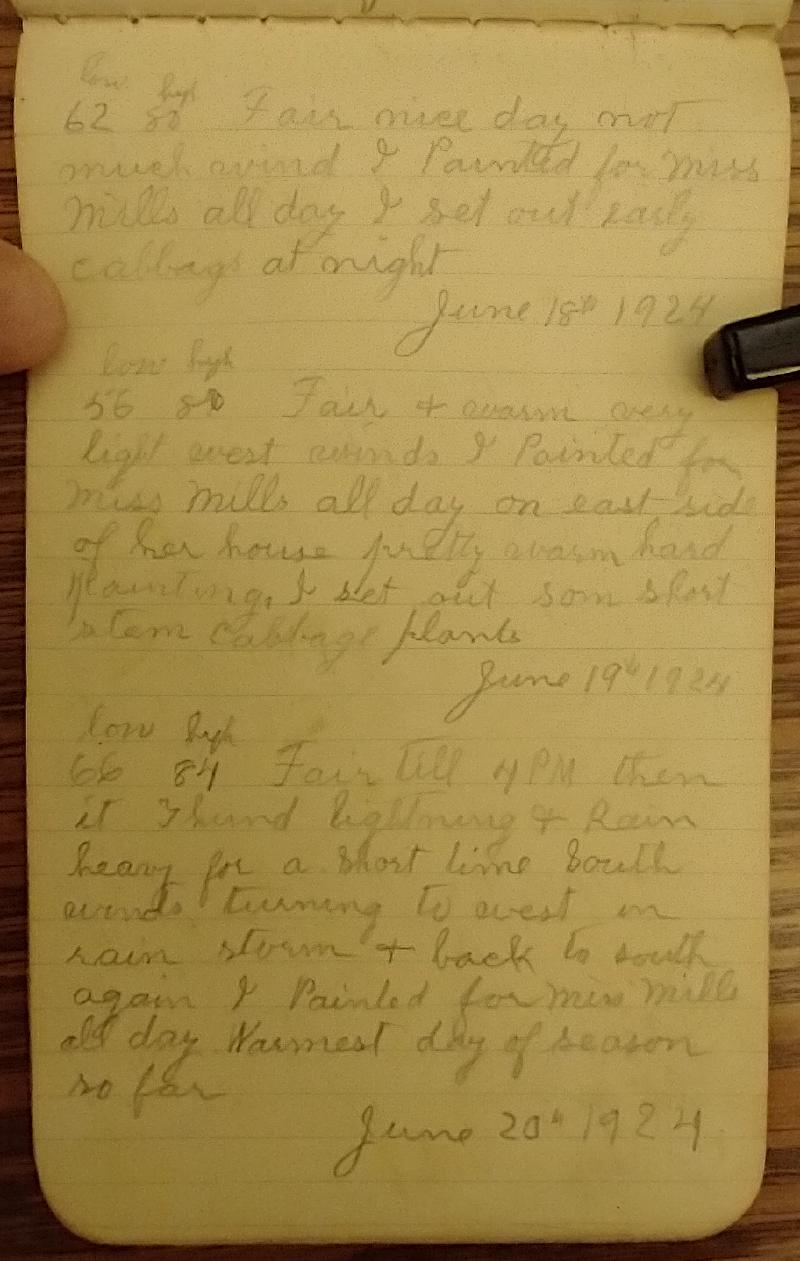 low high
62 80 Fair nice day not
much wind I Painted for Miss
Mills all day I set out early
cabbags at night
June 18th 1924
low high
56 80 Fair + warm very
light west winds I Painted for
Miss Mills all day on east side
of her house pretty warm hard
painting, I set out som short
stem cabbage plants
June 19th 1924
low high
66 84 Fair till 4 PM then
it Thund lightning + Rain
heavy for a short time South
winds turning to west in
rain storm + back to south
again I Painted for Miss Mills
all day Warmest day of season
so far
June 20th 1924